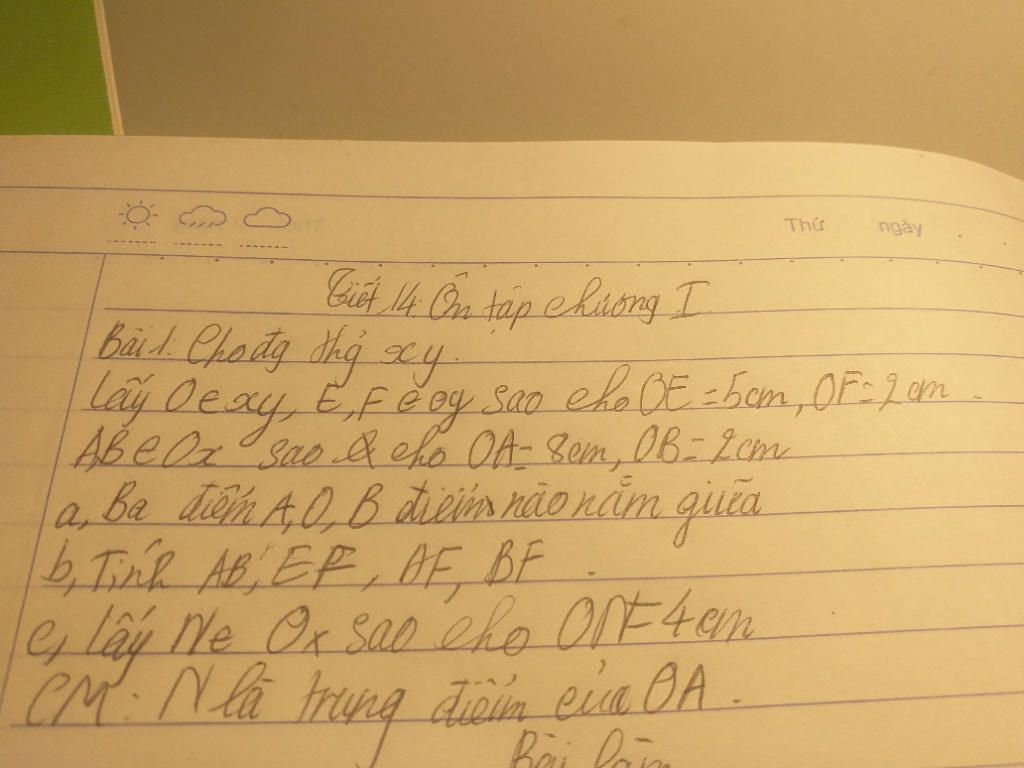 Thứ ngày
Tiết 14. Ôn tập chương I.
Bài 1. Cho đg thg xy.
Lấy O ∈ xy, E, F ∈ oy sao cho OE = 5cm, OF = 2cm.
A, B ∈ Ox sao cho OA = 8cm, OB = 2cm
a, Ba điểm A, O, B điểm nào nằm giữa
b, Tính AB, EF, AF, BF.
c, Lấy N ∈ Ox sao cho ON = 4cm
CM: N là trung điểm của OA.
Bài làm